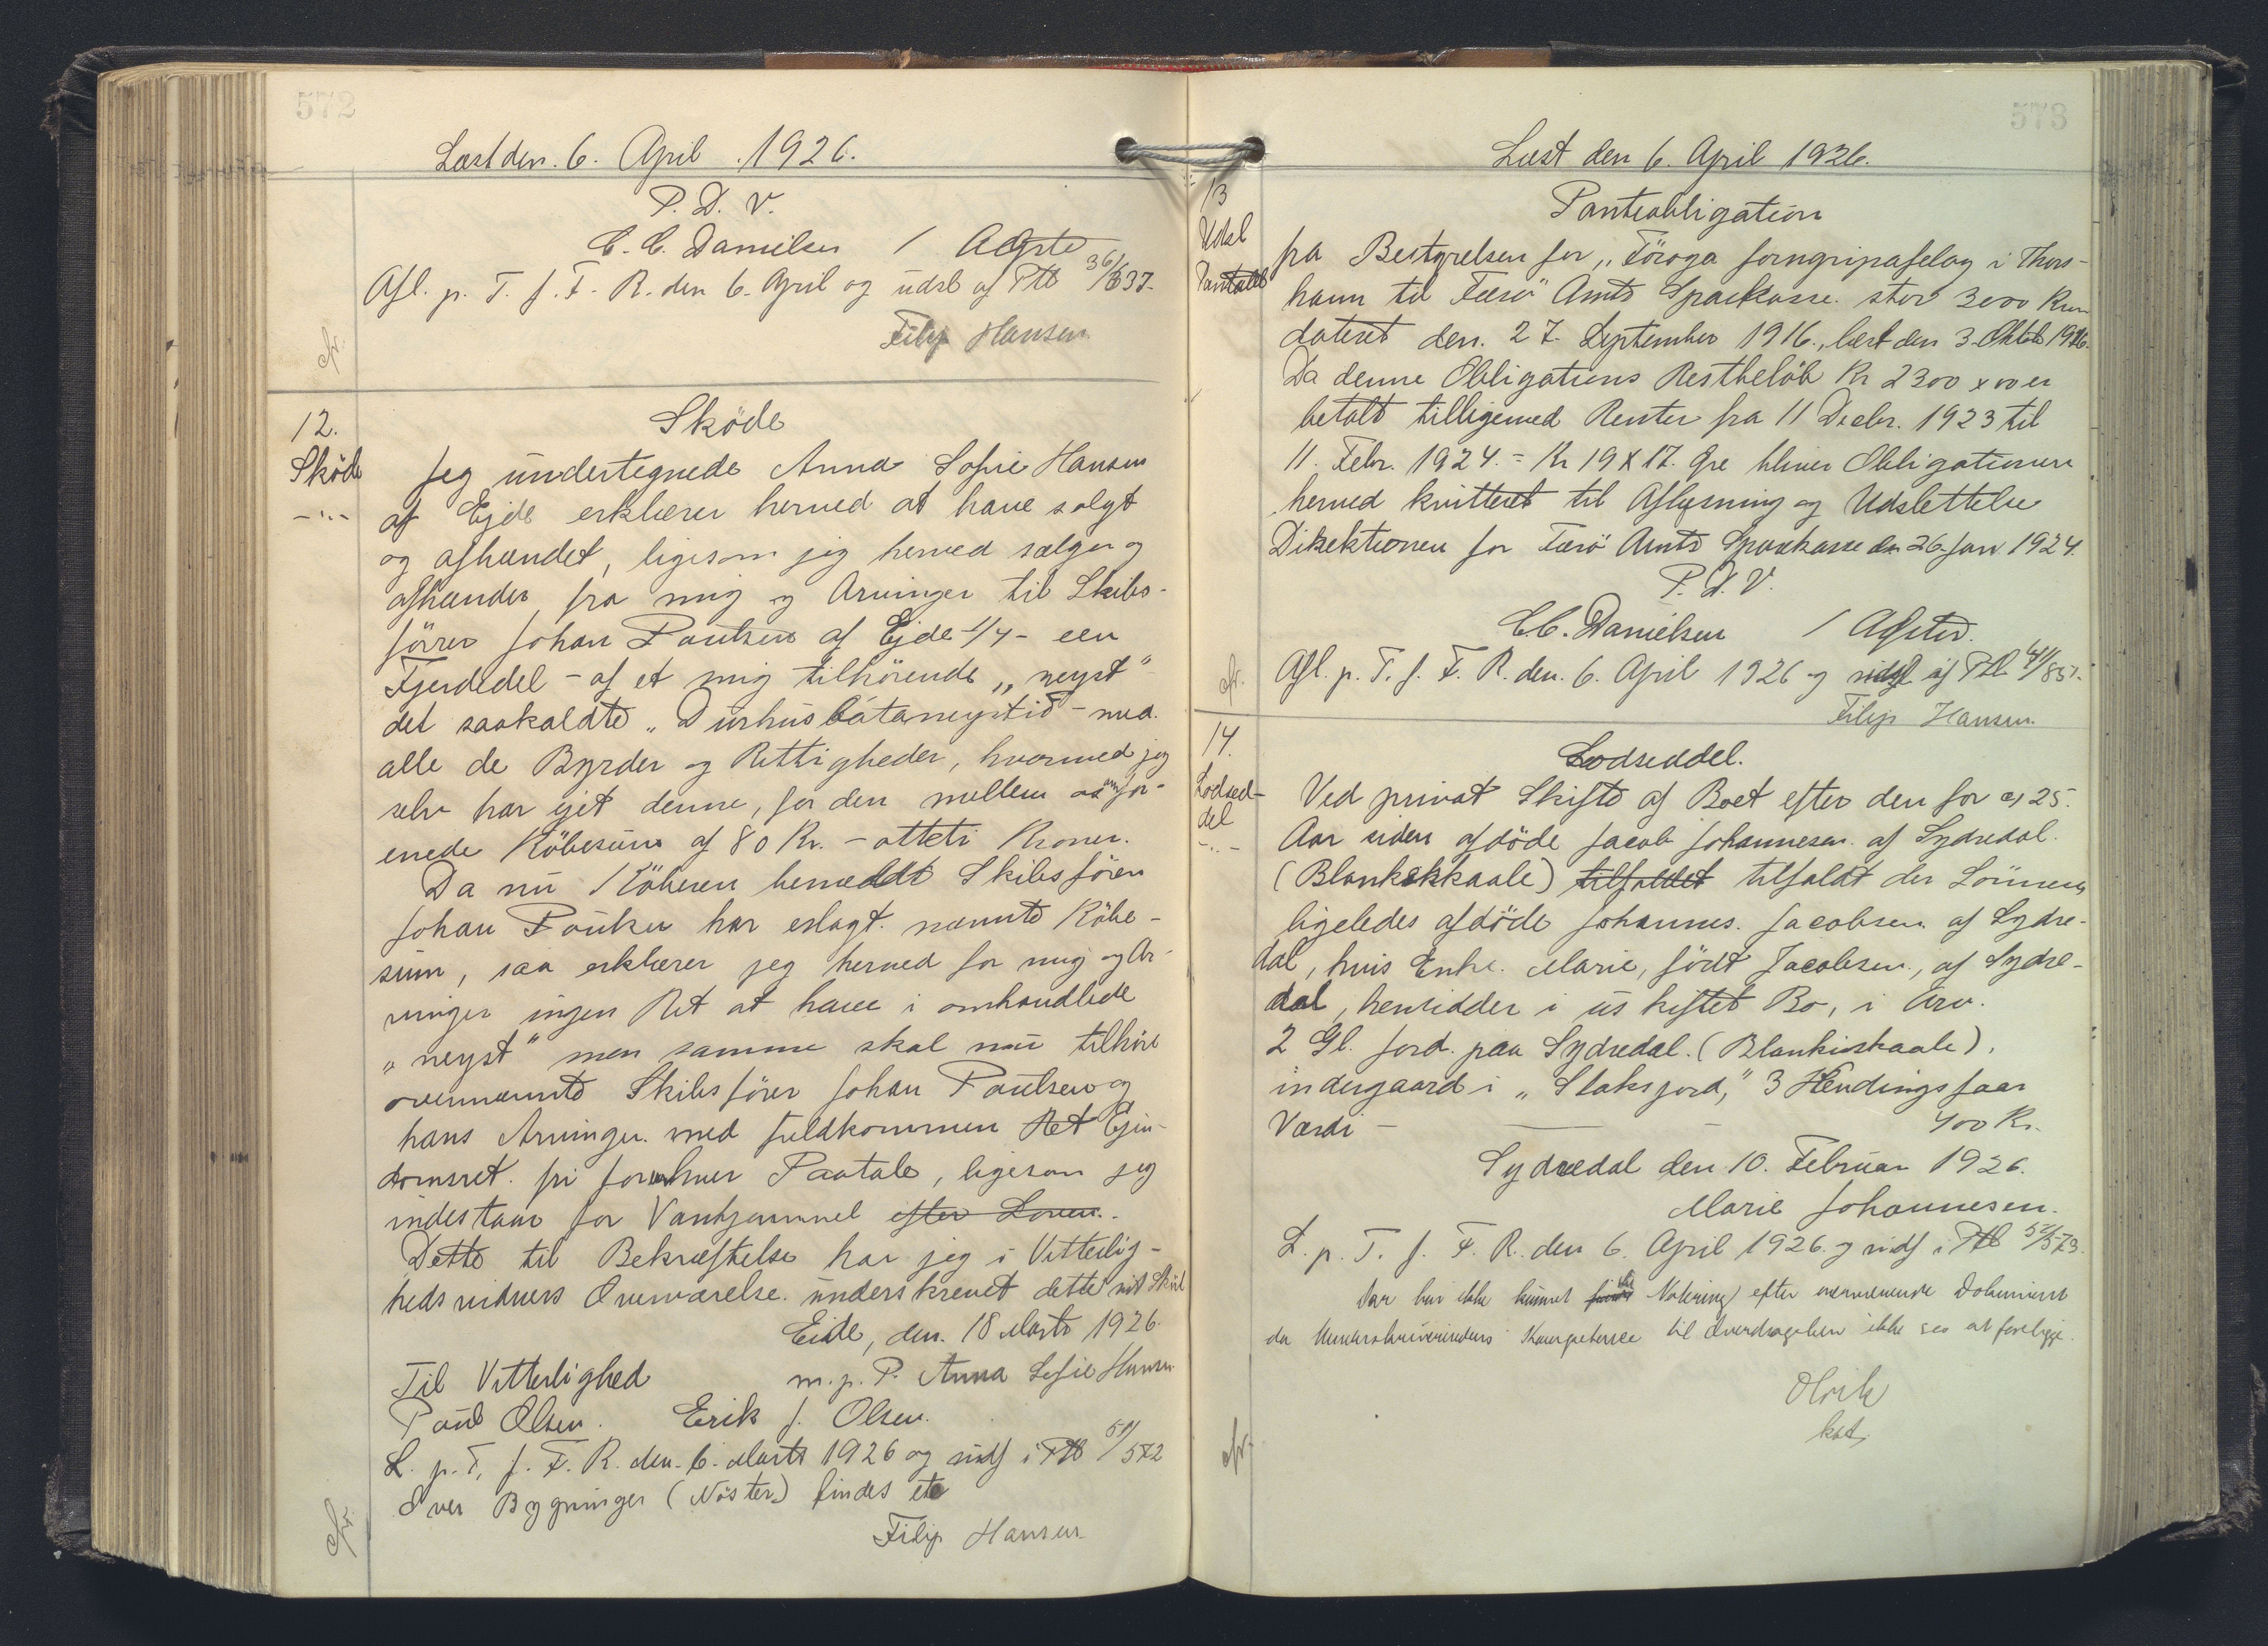 572
Læst den. 6. April .1926.
P. D. V.
C. C. Danielsen / A
Afl. p. T. f. F. R. den 6. April og udsl af Ptb 36/637.
Filip Hansen
cfr.
12.
Sköde
Sköde
-"-
Jeg undertegnede Anna Sofie Hansen
af Ejde erklærer herved at have solgt
og afhændet, ligesom jeg herved sælger og
afhænder fra mig og Arvinger til Skibs-
förer Johan Poulsen af Ejde 1/4 - een
Fjerdedel - af et mig tilhörende „neyst"
det saakaldte „Durhúsbátaneystið - med
alle de Byrder og Rettigheder, hvormed jeg
selv har ejet denne, for den mellem os om for-
enede Köbesum af 80 Kr. - otteti Kroner.
Da nu Köberen bemeldt Skibsförer
Johan Poulsen har erlagt nævnte Köbe-
sum, saa erklærer jeg herved for mig og Ar-
vinger ingen Ret at have i omhandlede
„neyst" men samme skal nu tilhöre
ovennævnte Skibsförer Johan Poulsen og
hans Arvinger med fuldkommen Ret Ejen-
domsret fri for enhver Paatale, ligesom jeg
indestaar for Vanhjemmel efter Loven.
Dette til Bekræftelse har jeg i Vitterlig-
hedsvidners Overværelse underskrevet dette mit Sköde
Eide, den. 18 Marts 1926
Til Vitterlighed m. p. P. Anna Sofie Hansen
Poul Olsen. Erik J. Olsen.
L. p. T. f. F. R. den 6. Marts 1926 og indf i Ptb 51/572
Over Bygninger (Nöster) findes etc
Filip Hansen
cfr.
573
Læst den 6. April 1926.
13
Udsl
Pantobl
Panteobligation
fra Bestyrelsen for „Föroya forngripafelag i Thors-
havn til Færö Amts Sparkasse stor 3000 Kr
dateret den. 27. September 1916., læst den 3. Oktob 1916.
Da denne Obligations Restbelöb Kr 2300 x 00 er
betalt tilligemed Renter fra 11 Decbr. 1923 til
11. Febr. 1924. = Kr 19 x 17. Øre bliver Obligationen
herved kvitteret til Aflysning og Udslettelse
Direktionen for Færö Amts Sparkasse den 26. Jan 1924.
P. D. V.
C.C. Danielsen /
Afl. p. T. f. F. R. den. 6. April 1926 og udsl af Ptb 41/857.
Filip Hansen.
cfr.
14.
Lodsed-
del
-"-
Lodseddel.
Ved privat Skifte af Boet efter den for ca 25.
Aar siden afdöde Jacob Johannesen af Sydredal.
(Blankskkaale) tilfaldet tilfaldt der Sönnen
ligeledes afdöde Johannes. Jacobsen af Sydre-
dal, hvis Enke Marie, födt Jacobsen, af Sydre-
dal, hensidder i uskiftet Bo, i Arv.
2 Gl. Jord paa Sydredal. (Blankiskaale),
indergaard i „Staksjord," 3 Hendingsfaar
Værdi - 400 Kr.
Sydredal den 10. Februar 1926.
Marie Johannesen.
L. p. T. f. F. R. den 6. April 1926 og indf i Ptb 51/573.
Der har ikke kunnet ske Notering efter ovennævnte Dokument
da Underskriverindens Kompetence til Overdragelsen ikke ses at foreligge.
Olrik
kst.
cfr.